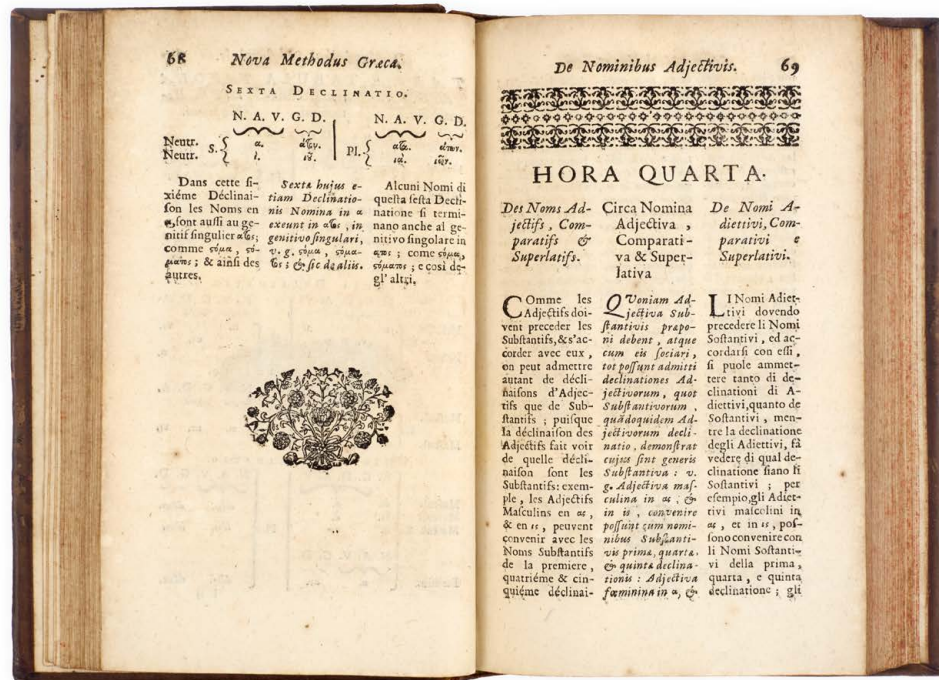 68 Nova Methodus Græca.
SEXTA DECLINATIO.
N. A. V. G. D. N. A. V. G. D.
Neutr. S. { α. ι. Pl. {
Neutr.
Dans cette si-
xiéme Déclinai-
son les Noms en
α, sont aussi au ge-
nitif singulier ατος;
comme σόμα, σό-
ματος; & ainsi des
autres.
Sexta hujus e-
tiam Declinatio-
nis Nomina in α
exeunt in ατος, in
genitivo singulari,
v. g. σόμα, σόμα-
τος; & sic de aliis.
Alcuni Nomi di
questa sesta Decli-
natione si termi-
nano anche al ge-
nitivo singolare in
ατος; come σόμα,
σόματος; e così de-
gl' altri.
De Nominibus Adjectivis. 69
HORA QUARTA.
Des Noms Ad-
jectifs, Com-
paratifs &
Superlatifs.
Circa Nomina
Adjectiva,
Comparati-
va & Super-
lativa
De Nomi A-
diettivi, Com-
parativi e
Superlativi.
COmme les
Adjectifs doi-
vent preceder les
Substantifs, & s'ac-
corder avec eux,
on peut admettre
autant de décli-
naisons d'Adjec-
tifs que de Sub-
stantifs; puisque
la déclinaison des
Adjectifs fait voir
de quelle décli-
naison sont les
Substantifs: exem-
ple, les Adjectifs
Masculins en ας,
& en ις, peuvent
convenir avec les
Noms Substantifs
de la premiere,
quatriéme & cin-
quiéme déclinai-
QVoniam Ad-
jectiva Sub-
stantivis præpo-
ni debent, atque
cum eis sociari,
tot possunt admitti
declinationes Ad-
jectivorum, quot
Substantivorum,
quãdoquidem Ad-
jectivorum decli-
natio, demonstrat
cujus sint generis
Substantiva: v.
g. Adjectiva mas-
culina in ας, &
in ις, convenire
possunt cum nomi-
nibus Substanti-
vis primæ, quartæ,
& quintæ declina-
tionis: Adjectiva
fœminina in α, &
LI Nomi Adiet-
tivi dovendo
precedere li Nomi
Sostantivi, ed ac-
cordarsi con essi,
si puole ammet-
tere tanto di de-
clinationi di A-
diettivi, quanto de
Sostantivi, men-
tre la declinatione
degli Adiettivi, fà
vedere di qual de-
clinatione siano li
Sostantivi; per
esempio, gli Adiet-
tivi mascolini in
ας, et in ις, pos-
sono convenire con
li Nomi Sostanti-
vi della prima,
quarta, e quinta
declinatione; gli